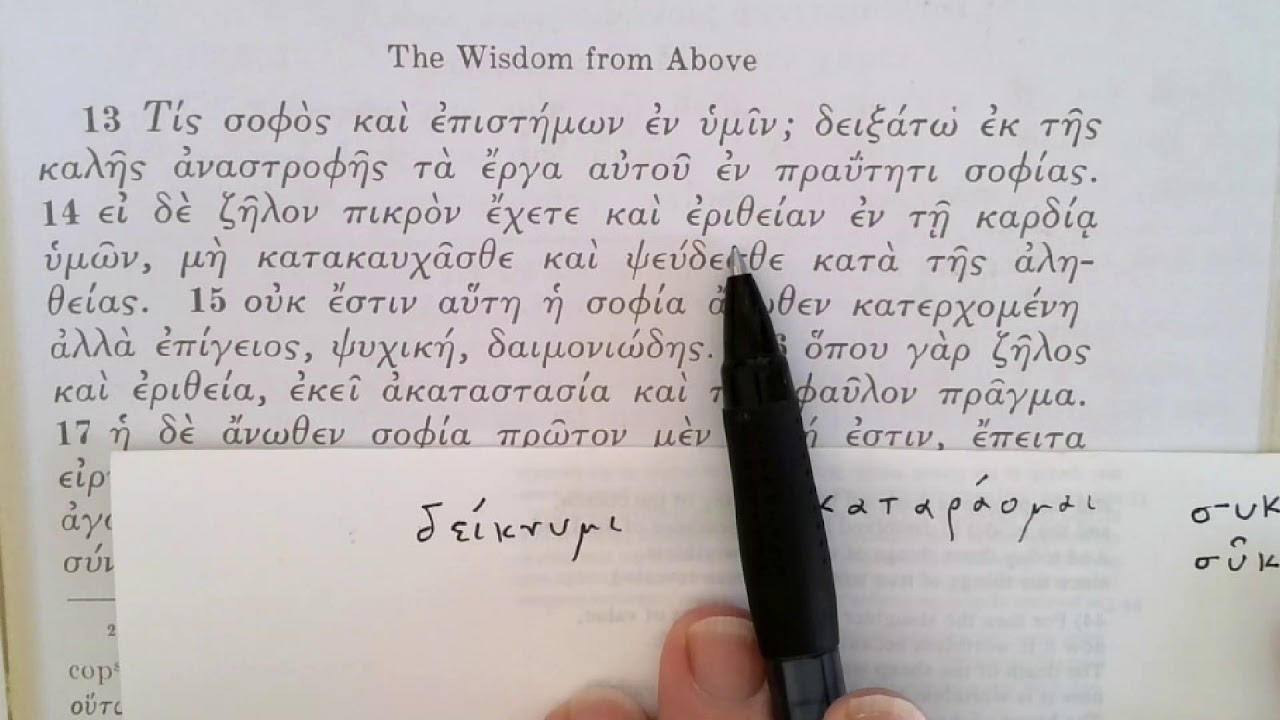 The Wisdom from Above
13 Τίς σοφὸς καὶ ἐπιστήμων ἐν ὑμῖν; δειξάτω ἐκ τῆς
καλῆς ἀναστροφῆς τὰ ἔργα αὐτοῦ ἐν πραΰτητι σοφίας.
14 εἰ δὲ ζῆλον πικρὸν ἔχετε καὶ ἐριθείαν ἐν τῇ καρδίᾳ
ὑμῶν, μὴ κατακαυχᾶσθε καὶ ψεύδεσθε κατὰ τῆς ἀλη-
θείας. 15 οὐκ ἔστιν αὕτη ἡ σοφία κατερχομένη
ἀλλὰ ἐπίγειος, ψυχική, δαιμονιώδης. ὅπου γὰρ ζῆλος
καὶ ἐριθεία, ἐκεῖ ἀκαταστασία καὶ φαῦλον πρᾶγμα.
17 ἡ δὲ ἄνωθεν σοφία πρῶτον μὲν ἐστιν, ἔπειτα
δείκνυμι καταράομαι